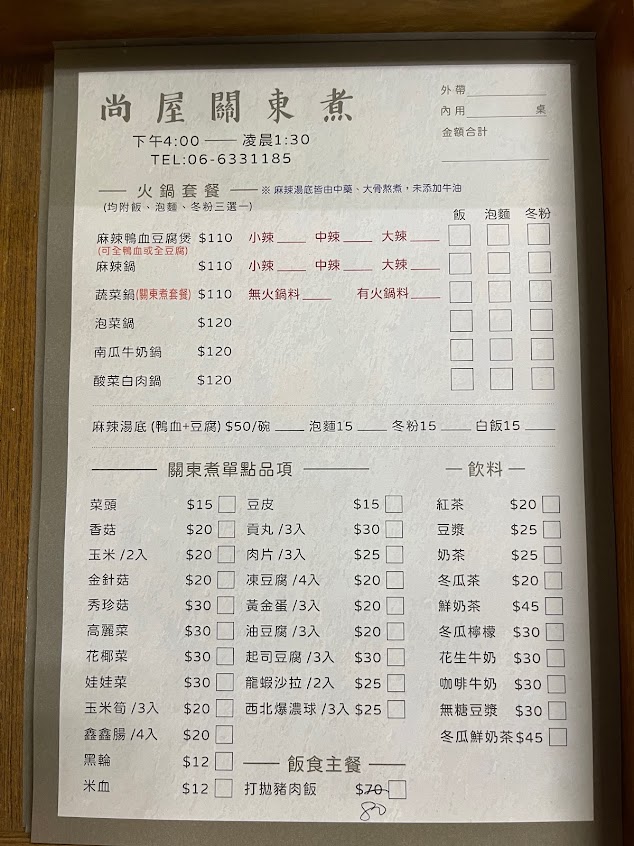 尚屋關東煮
外帶
下午4:00 —— 凌晨1:30
內用 桌
TEL:06-6331185
金額合計
火鍋套餐 ※ 麻辣湯底皆由中藥、大骨熬煮，未添加牛油
(均附飯、泡麵、冬粉三選一)
飯 泡麵 冬粉
麻辣鴨血豆腐煲 $110 小辣 中辣 大辣
(可全鴨血或全豆腐)
麻辣鍋 $110 小辣 中辣 大辣
蔬菜鍋(關東煮套餐) $110 無火鍋料 有火鍋料
泡菜鍋 $120
南瓜牛奶鍋 $120
酸菜白肉鍋 $120
麻辣湯底 (鴨血+豆腐) $50/碗 泡麵15 冬粉15 白飯15
關東煮單點品項
菜頭 $15
香菇 $20
玉米 /2入 $20
金針菇 $20
秀珍菇 $30
高麗菜 $30
花椰菜 $30
娃娃菜 $30
玉米筍 /3入 $20
鑫鑫腸 /4入 $20
黑輪 $12
米血 $12
豆皮 $15
貢丸 /3入 $30
肉片 /3入 $25
凍豆腐 /4入 $20
黃金蛋 /3入 $20
油豆腐 /3入 $20
起司豆腐 /3入 $30
龍蝦沙拉 /2入 $25
西北爆濃球 /3入 $25
飯食主餐
打拋豬肉飯 $70
80
飲料
紅茶 $20
豆漿 $25
奶茶 $25
冬瓜茶 $20
鮮奶茶 $45
冬瓜檸檬 $30
花生牛奶 $30
咖啡牛奶 $30
無糖豆漿 $30
冬瓜鮮奶茶 $45